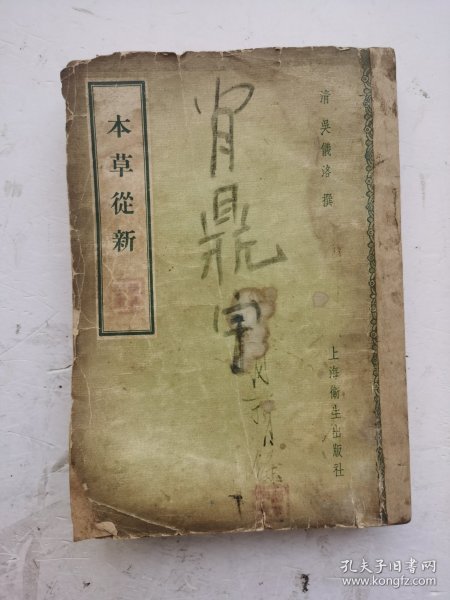 清 吳儀洛 撰
上海衞生出版社
鼎
本草從新
孔夫子旧书网
www.kongfz.com